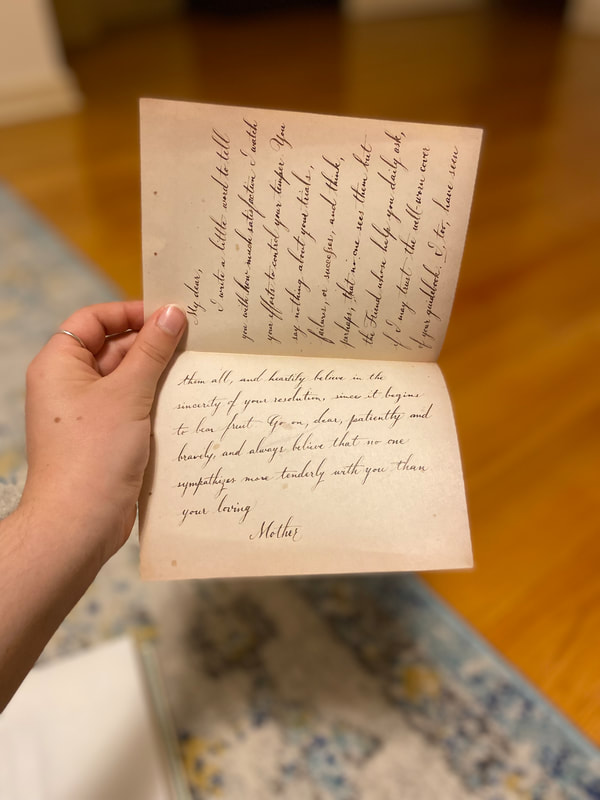 My dear,
I write a little word to tell
you with how much satisfaction I watch
your efforts to control your temper You
say nothing about your trials,
failures, or successes, and think,
perhaps, that no one sees them but
the Friend whose help you daily ask,
if I may trust the well-worn cover
of your guidebook. I, too, have seen
them all, and heartily believe in the
sincerity of your resolution, since it begins
to bear fruit Go on, dear, patiently and
bravely, and always believe that no one
sympathizes more tenderly with you than
your loving
Mother